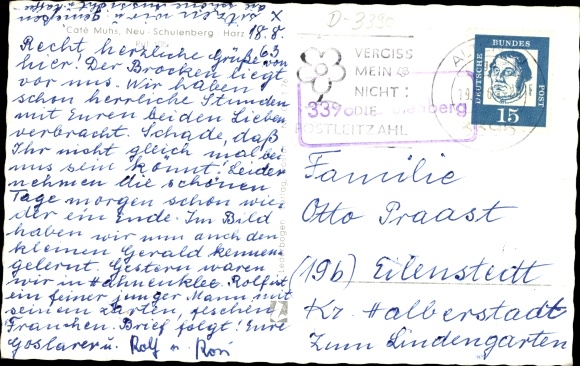 x sitzen wir u. genießen
Café Muhs, Neu-Schulenberg Harz 18.8.
63
Recht herzliche Grüße von
hier! Der Brocken liegt
vor uns. Wir haben
schon herrliche Stunden
mit Euren beiden Lieben
verbracht. Schade, daß
Ihr nicht gleich mal bei
uns sein könnt! Leider
nehmen die schönen
Tage morgen schon wie-
der ein Ende. Im Bild
haben wir nun auch den
kleinen Gerald kennen-
gelernt. Gestern waren
wir in Hahnenklee. Rolf ist
ein feiner junger Mann mit
seinem zarten, feschen
Frauchen. Brief folgt! Eure
Goslarer u. Rolf u. Rosi
D-3390
VERGISS
MEIN
NICHT:
DIE
POSTLEITZAHL
339
enberg
DEUTSCHE BUNDES POST
15
Familie
Otto Praast
(19b) Eilenstedt
Kr. Halberstadt
Zum Lindengarten